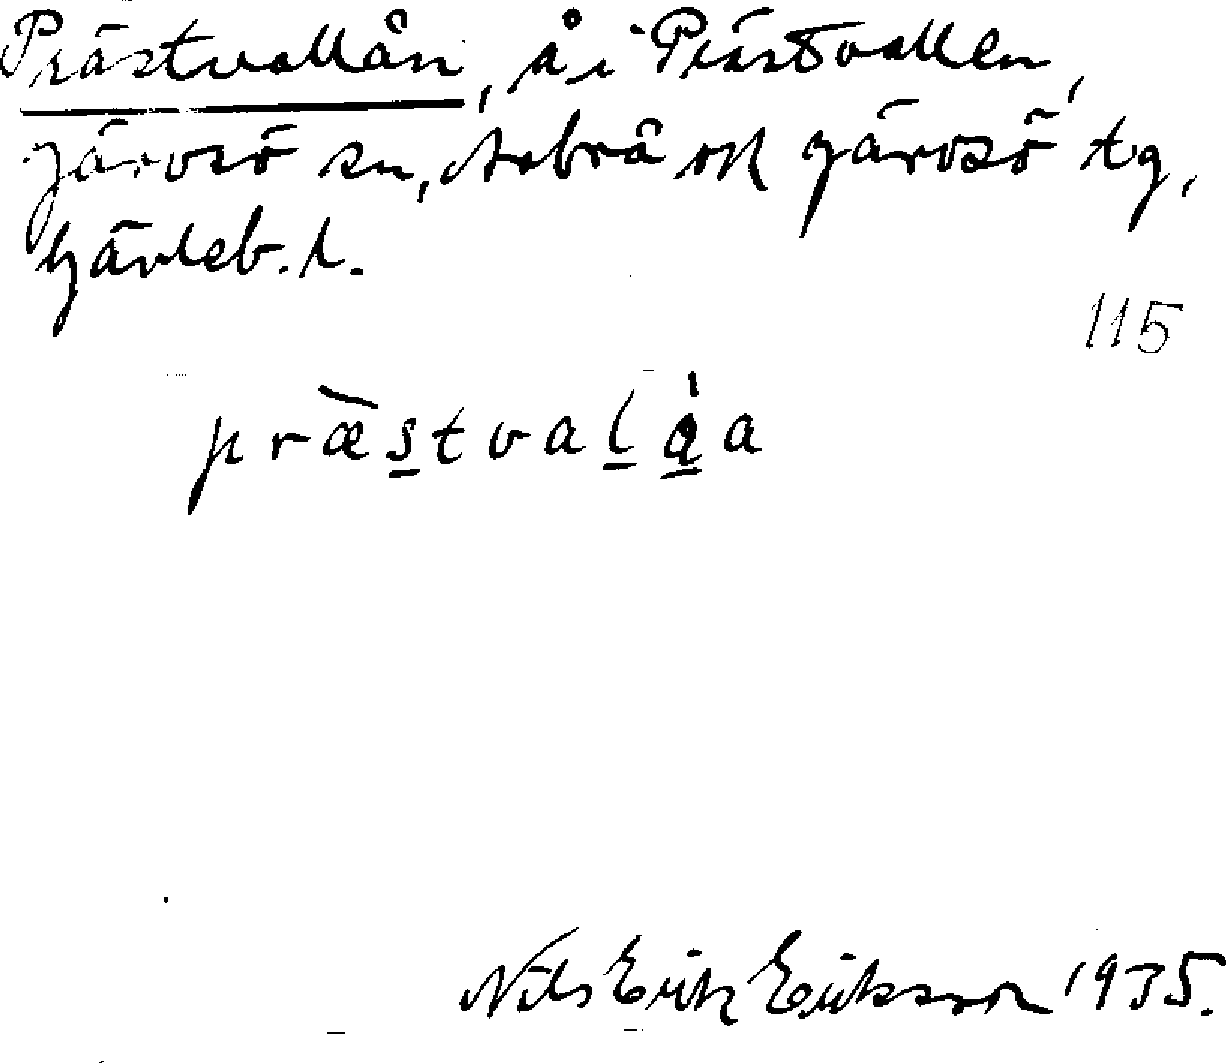 Prästvallån, å i Prästvallen,
Järvsö sn, Arbrå och Järvsö tg,
Gävleb. l.
115
præstvalåa
Nils Erik Eriksson 1935.